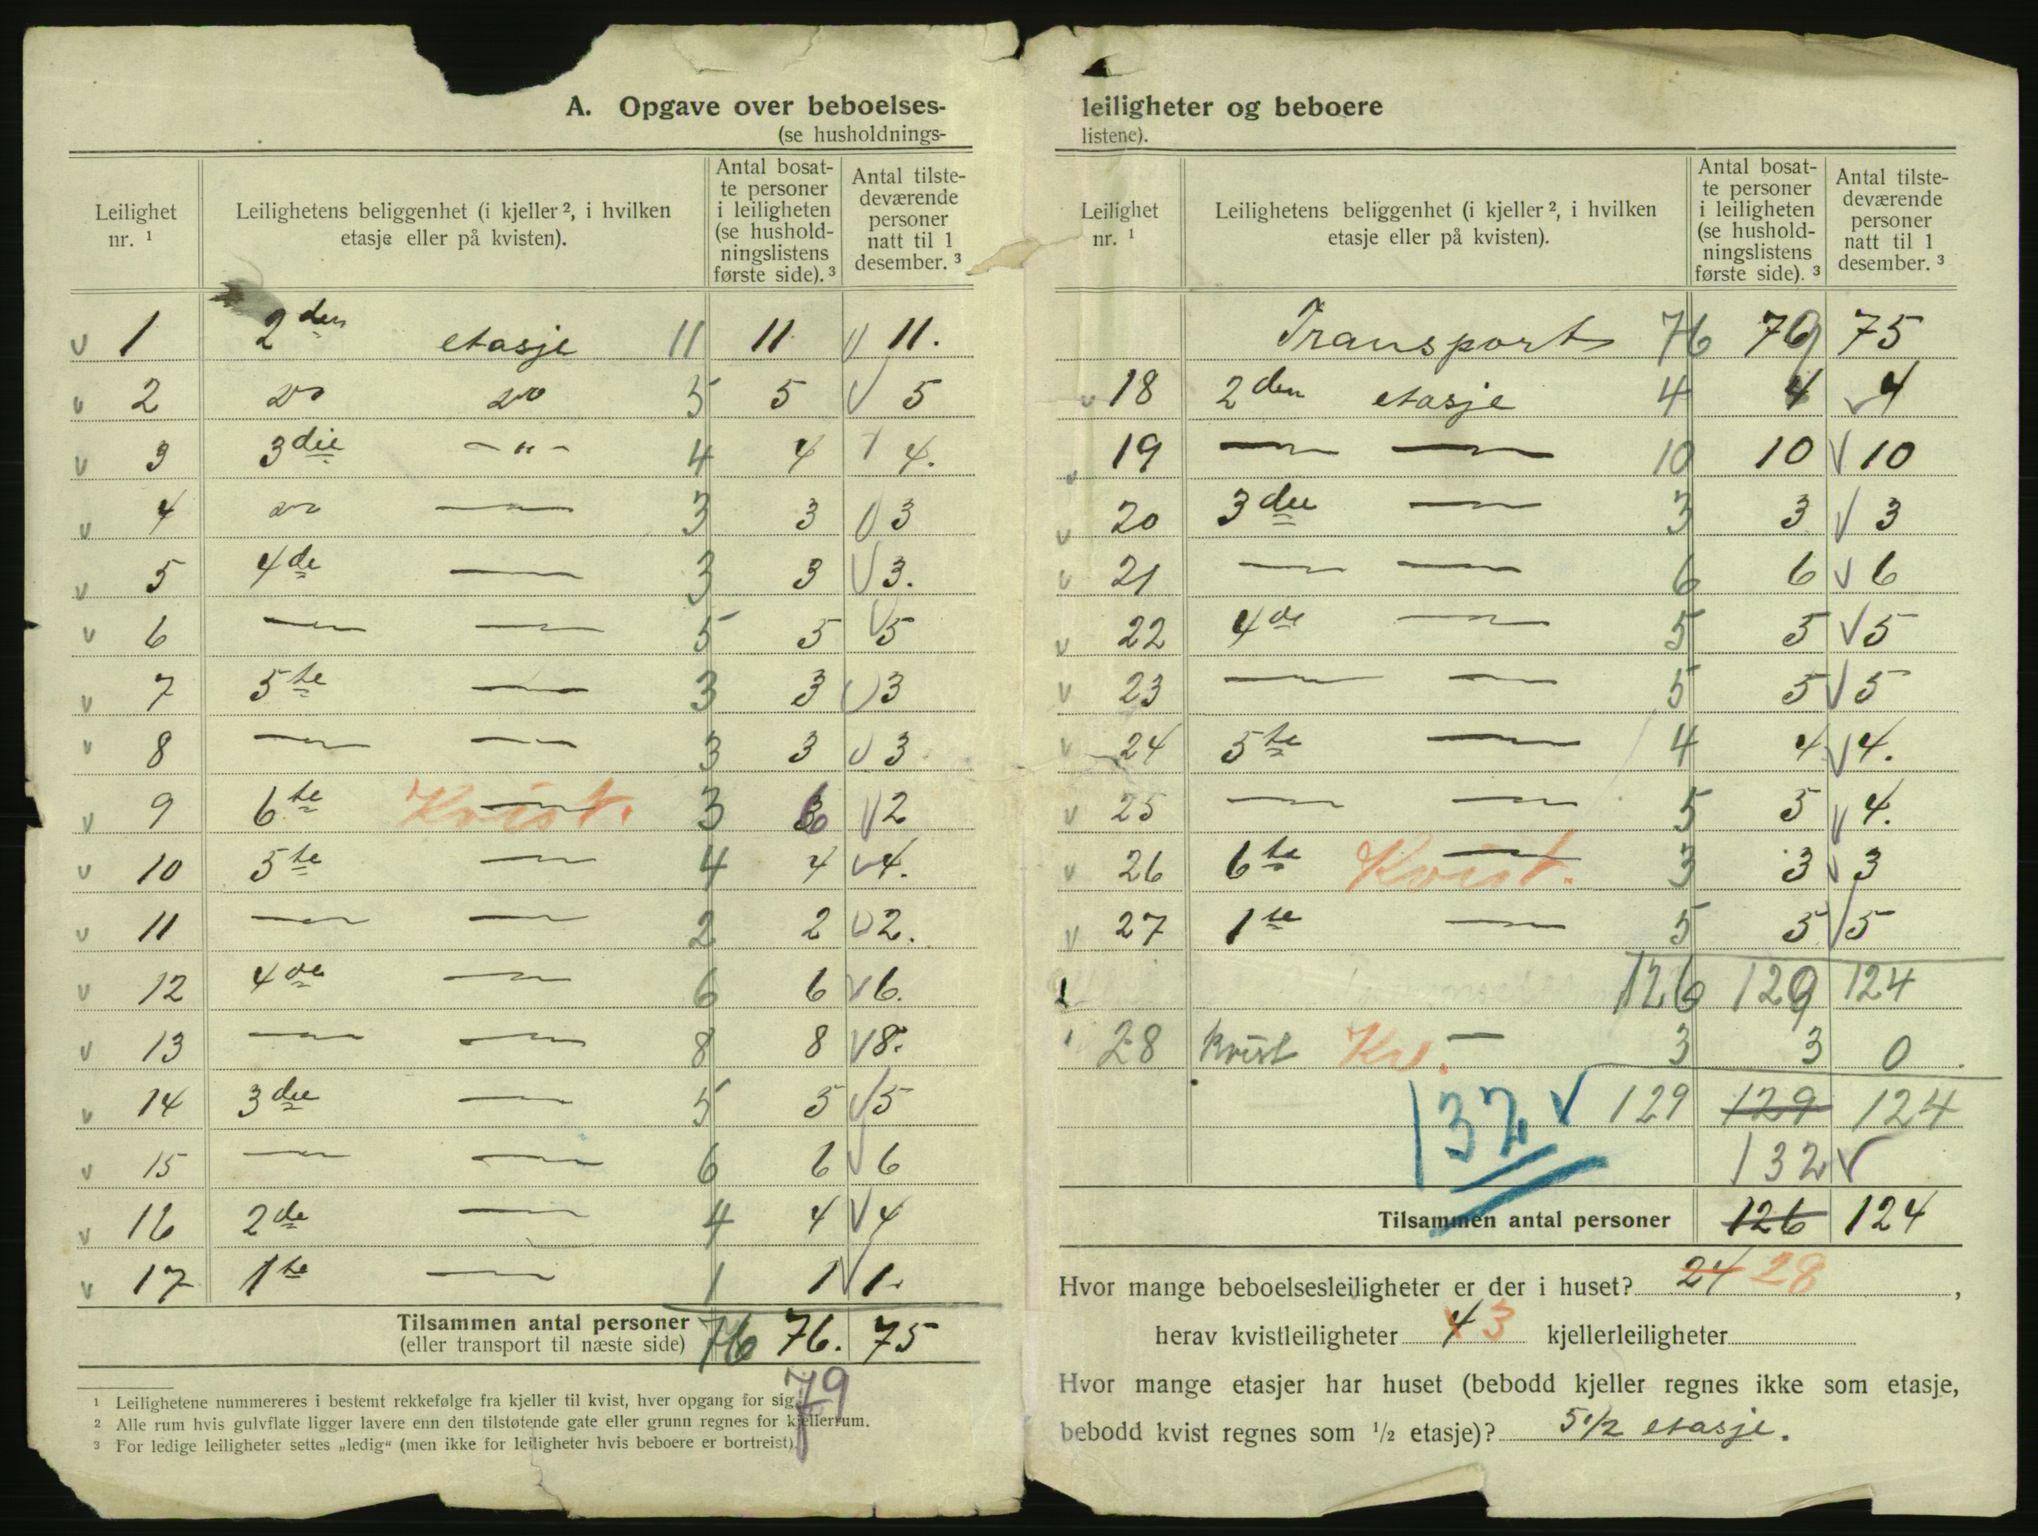 A. Opgave over beboelses-
(se husholdnings-
Leilighet nr. ¹ | Leilighetens beliggenhet (i kjeller ², i hvilken etasje eller på kvisten). | Antal bosatte personer i leiligheten (se husholdningslistens første side). ³ | Antal tilstedeværende personer natt til 1 desember. ³
v 1 2den etasje 11 11 v 11.
v 2 do do 5 5 v 5
v 3 3die -"- 4 4 v 4.
v 4 do — 3 3 v 3
v 5 4de — 3 3 v 3.
v 6 — — 5 5 v 5
v 7 5te — 3 3 v 3
v 8 — — 3 3 v 3
v 9 6te — Kvist. 3 6 v 2
v 10 5te — 4 4 v 4.
v 11 — — 2 2 v 2.
v 12 4de — 6 6 v 6.
v 13 — — 8 8 v 8.
v 14 3die — 5 5 v 5
v 15 — — 6 6 v 6
v 16 2de — 4 4 v 4
v 17 1te — 1 1 v 1.
Tilsammen antal personer
(eller transport til næste side) 76 76. 75
79
¹ Leilighetene nummereres i bestemt rekkefølge fra kjeller til kvist, hver opgang for sig.
² Alle rum hvis gulvflate ligger lavere enn den tilstøtende gate eller grunn regnes for kjellerrum.
³ For ledige leiligheter settes „ledig“ (men ikke for leiligheter hvis beboere er bortreist).
leiligheter og beboere
listene).
Leilighet nr. ¹ | Leilighetens beliggenhet (i kjeller ², i hvilken etasje eller på kvisten). | Antal bosatte personer i leiligheten (se husholdningslistens første side). ³ | Antal tilstedeværende personer natt til 1 desember. ³
Transport 76 79 75
v 18 2den etasje 4 4 v 4
v 19 — — 10 10 v 10
v 20 3die — 3 3 v 3
v 21 — — 6 6 v 6
v 22 4de — 5 5 v 5
v 23 — — 5 5 v 5
v 24 5te — 4 4 v 4.
v 25 — — 5 5 v 4.
v 26 6te — Kvist. 3 3 v 3
v 27 1te — 5 5 v 5
126 129 124
28 kvist Kv. — 3 3 0
132 v 129 129 124
132 v
Tilsammen antal personer 126 124
Hvor mange beboelsesleiligheter er der i huset? 24 28,
herav kvistleiligheter 4 3 kjellerleiligheter
Hvor mange etasjer har huset (bebodd kjeller regnes ikke som etasje,
bebodd kvist regnes som ½ etasje)? 5 1/2 etasje.